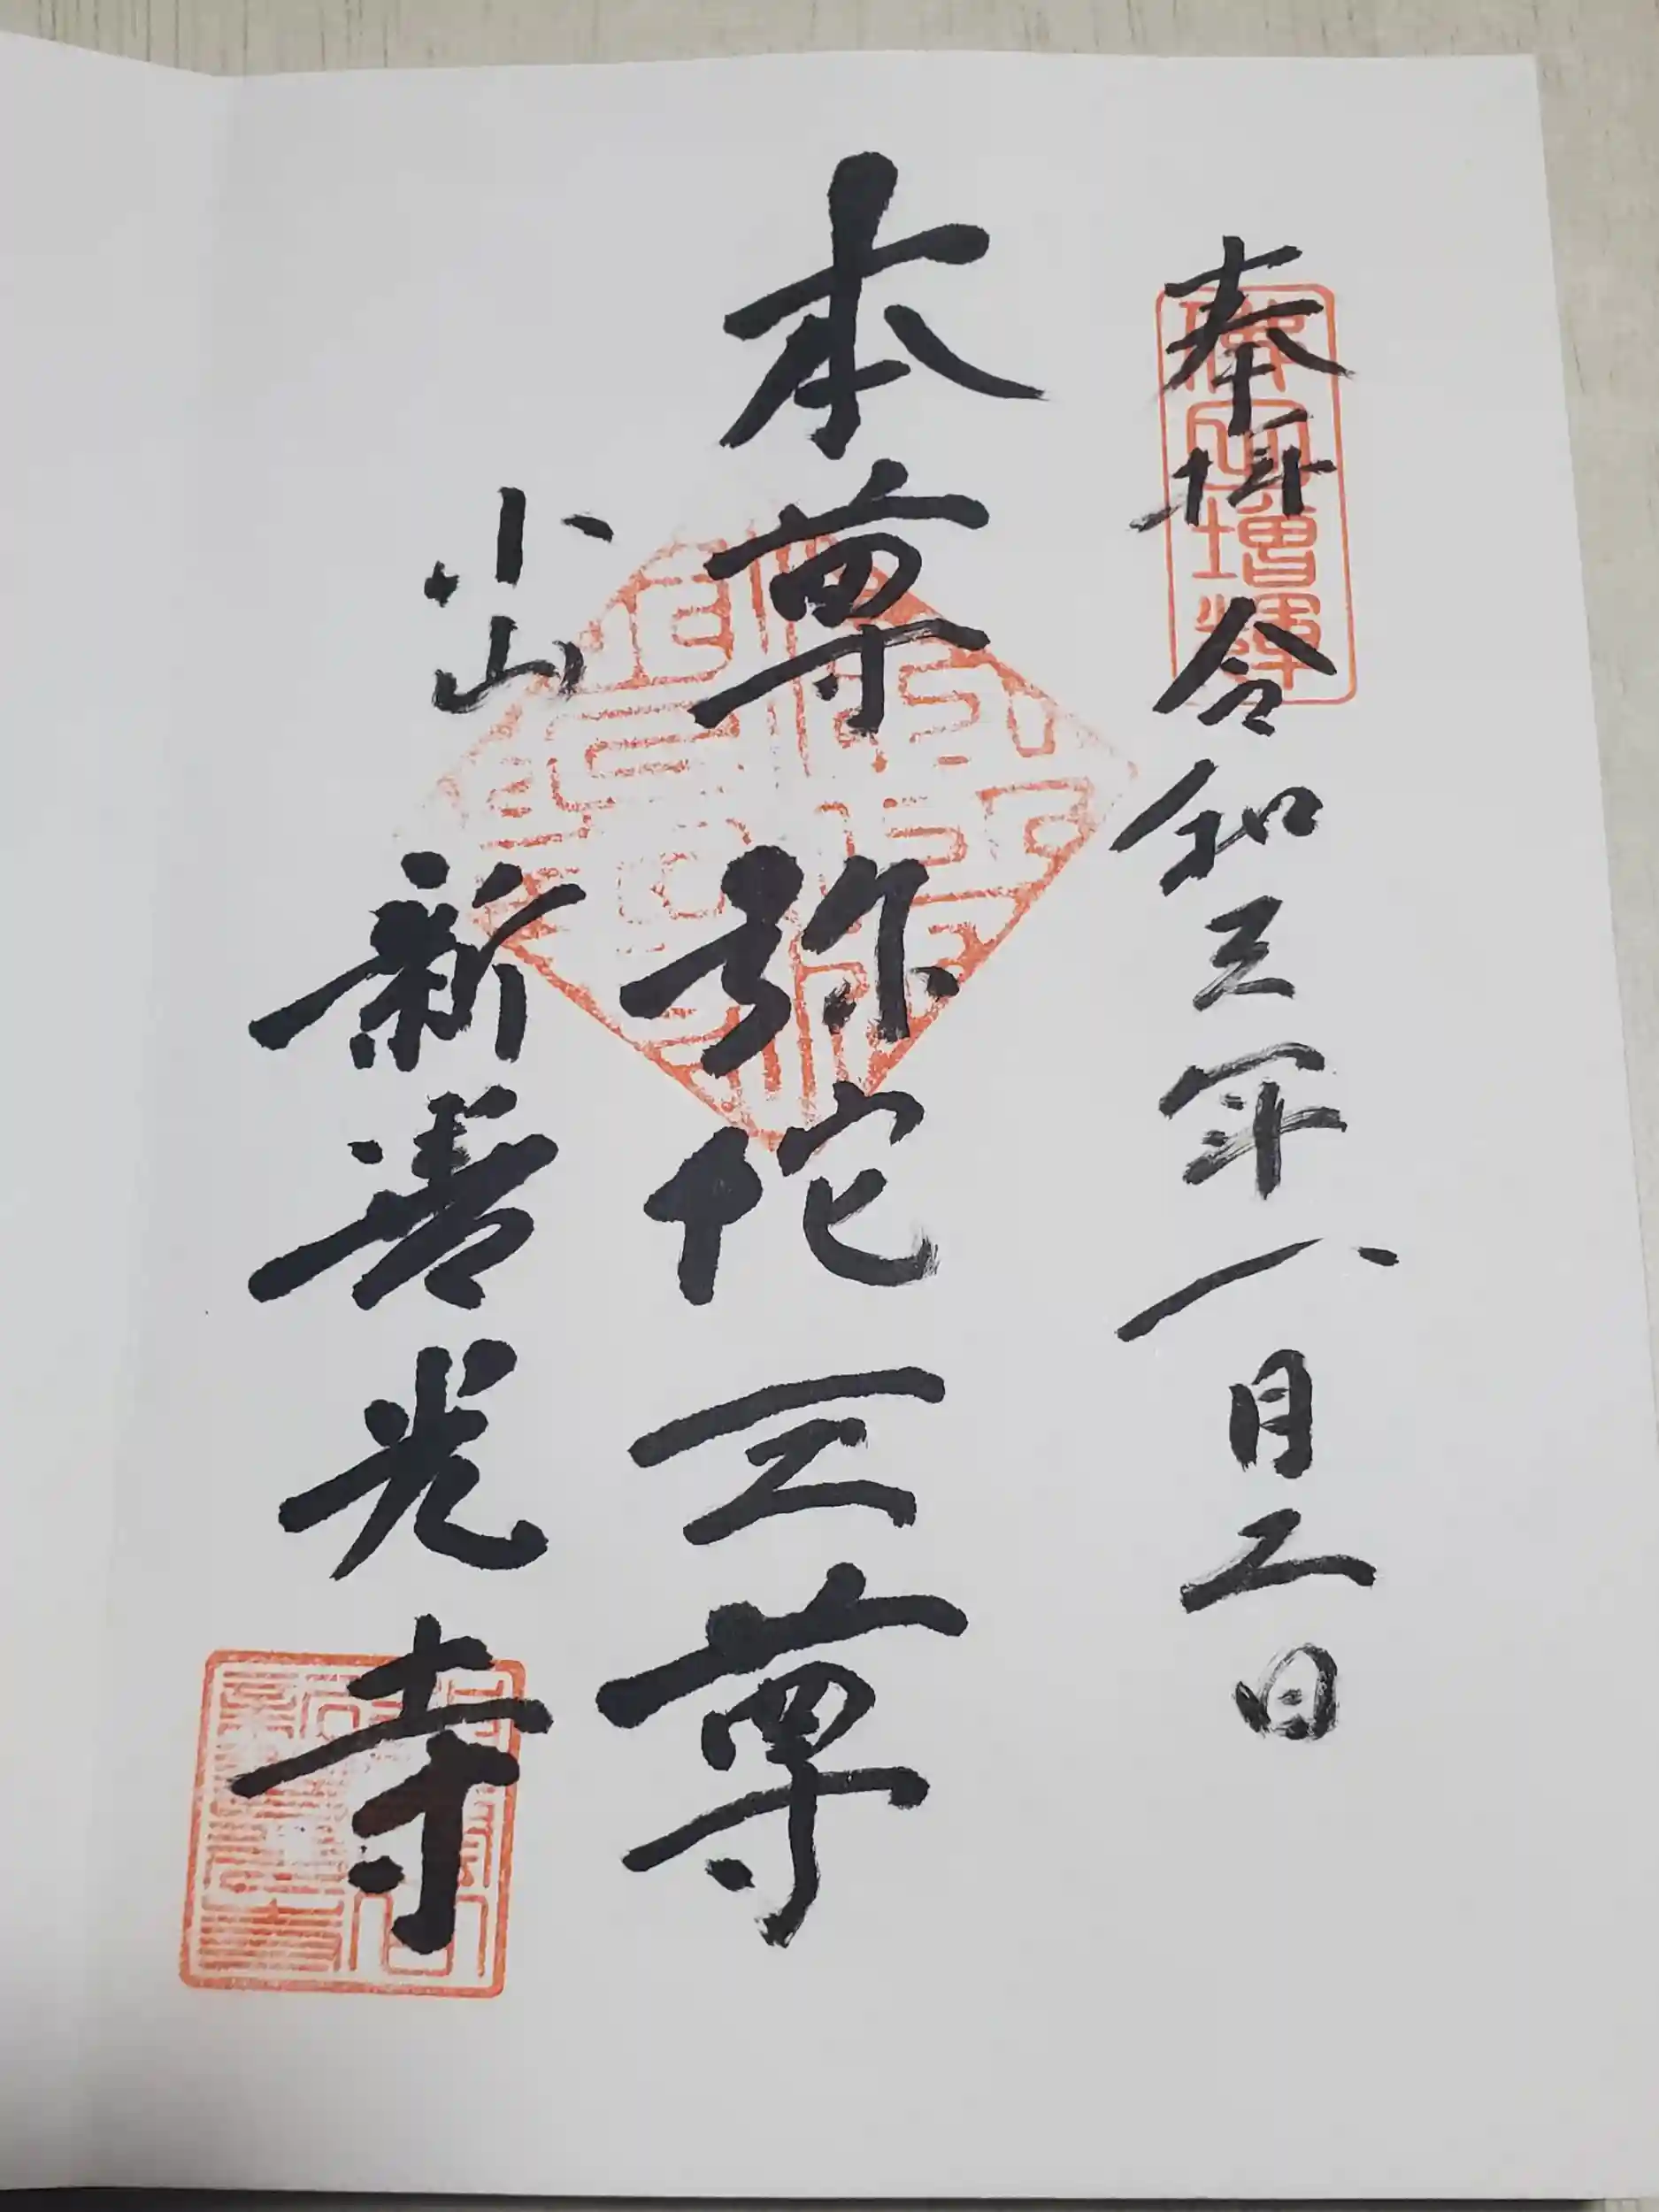 奉拝 令和三年八月二日
本尊 弥陀三尊
小山 新善光寺